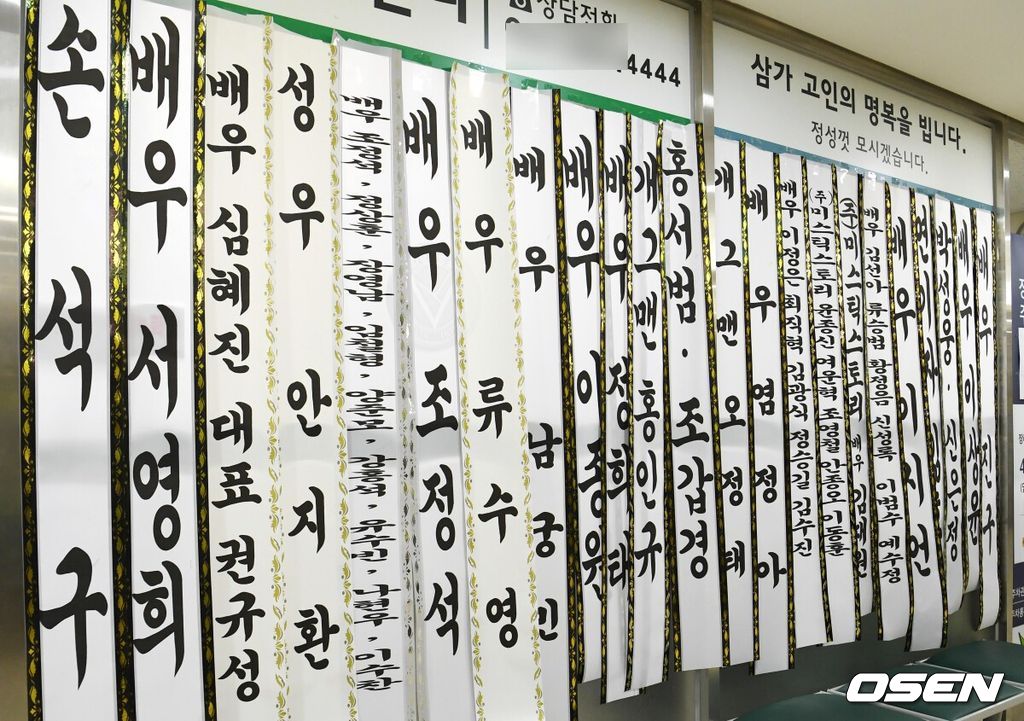 상담전화
4444
삼가 고인의 명복을 빕니다.
정성껏 모시겠습니다.
손석구
배우 서영희
배우 심혜진 대표 권규성
성우 안지환
배우 조정석
배우 류수영
배우 남궁민
배우 이종원
배우 정희태
개그맨 홍인규
홍서범 · 조갑경
개그맨 오정태
배우 염정아
배우 이정은 최직혁 김광식 정승길 김수진
(주)미스틱스토리 윤종신 여운혁 조영철 안종오 이동훈
(주)미스틱스토리 배우 김태원
배우 김선아 류승범 황정음 신성록 이범수 예수정
배우 이시언
박성웅 · 신은정
배우 이상윤
배우 진구
OSEN